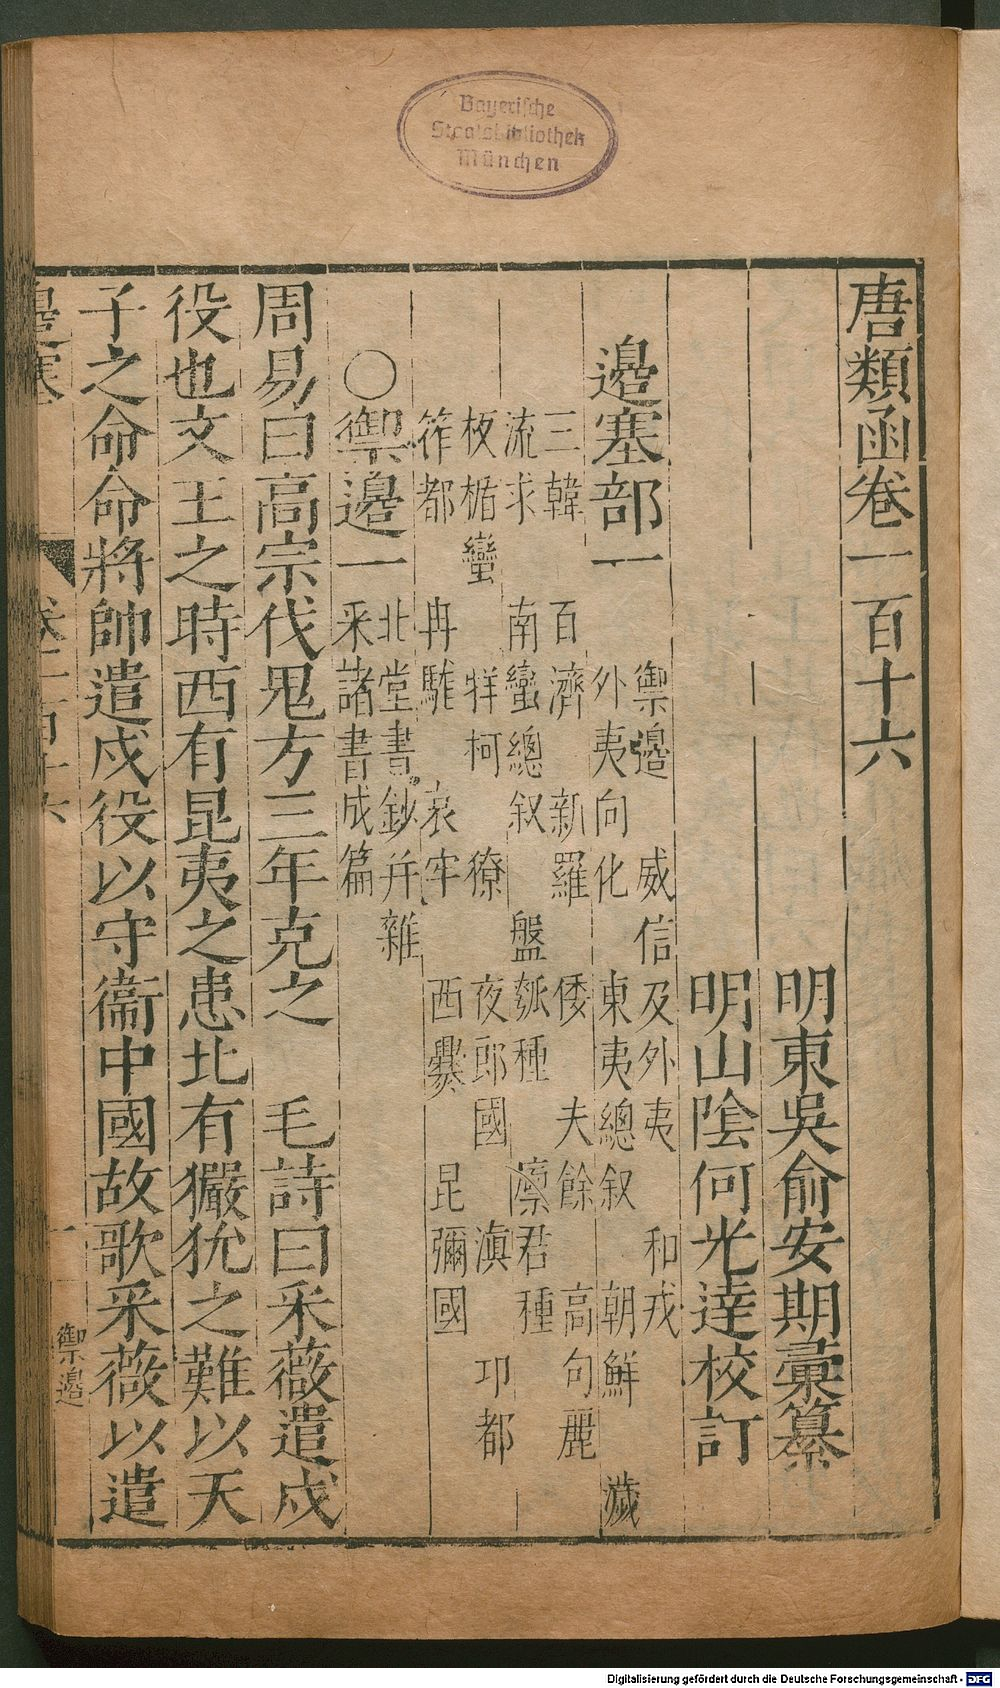 Bayerische
Staatsbibliothek
München
唐類函卷一百十六
明東吳俞安期彙纂
明山陰何光達校訂
邊塞部一
禦邊 威信及外夷 和戎
外夷向化 東夷總叙 朝鮮 濊
三韓 百濟 新羅 倭 夫餘 高句麗
流求 南蠻總叙 盤瓠種 廪君種
板楯蠻 牂柯 獠 夜郎國 滇 邛都
筰都 冉駹 哀牢 西爨 昆彌國
○禦邊一
北堂書鈔并雜
采諸書成篇
周易曰高宗伐鬼方三年克之 毛詩曰采薇遣戍
役也文王之時西有昆夷之患北有玁狁之難以天
子之命命將帥遣戍役以守衞中國故歌采薇以遣
邊塞 卷一百十六 一 禦邊
Digitalisierung gefördert durch die Deutsche Forschungsgemeinschaft - DFG